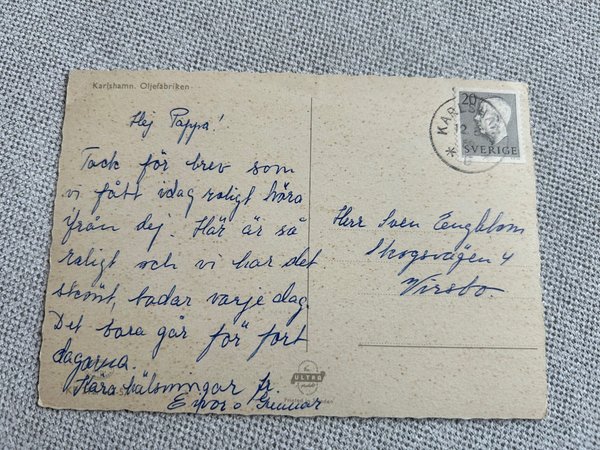 Karlshamn. Oljefabriken
Hej Pappa!
Tack för brev som
vi fått idag roligt höra
ifrån dej. Här är så
roligt och vi har det
skönt, badar varje dag.
Det bara går för fort
dagarna.
Kära hälsningar fr.
Gunnar
Herr Sven Engblom
Skogsvägen 4
Virsbo.
20
SVERIGE
KARLSHAMN
12
ULTRA
Printed in Sweden